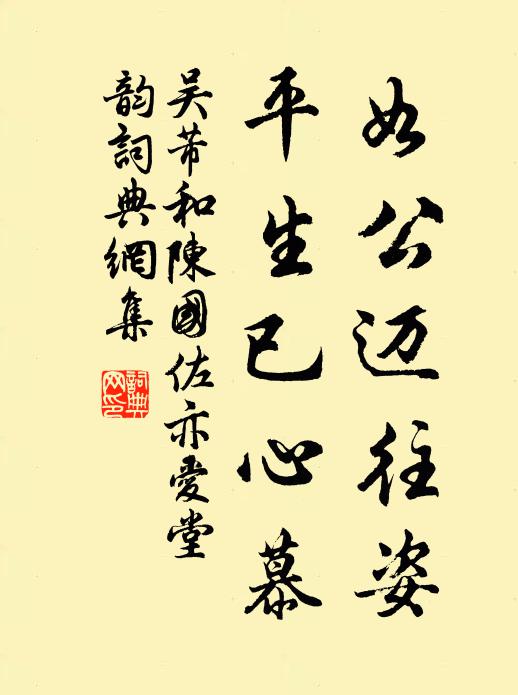 如公迈往姿
平生已心慕
吴芾和陳國佐亦愛堂
韵詞典網集
詞典網印